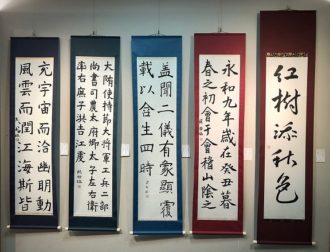 紅樹添秋色
永和九年歲在癸丑暮
春之初會于會稽山陰之
蓋聞二儀有象顯覆
載以含生四時
大隋使持節大將軍工兵二部
尚書司農太府卿太子左右衛
率右庶子洪吉江虔
充宇宙而洽幽明動
風雲而潤江海斯皆